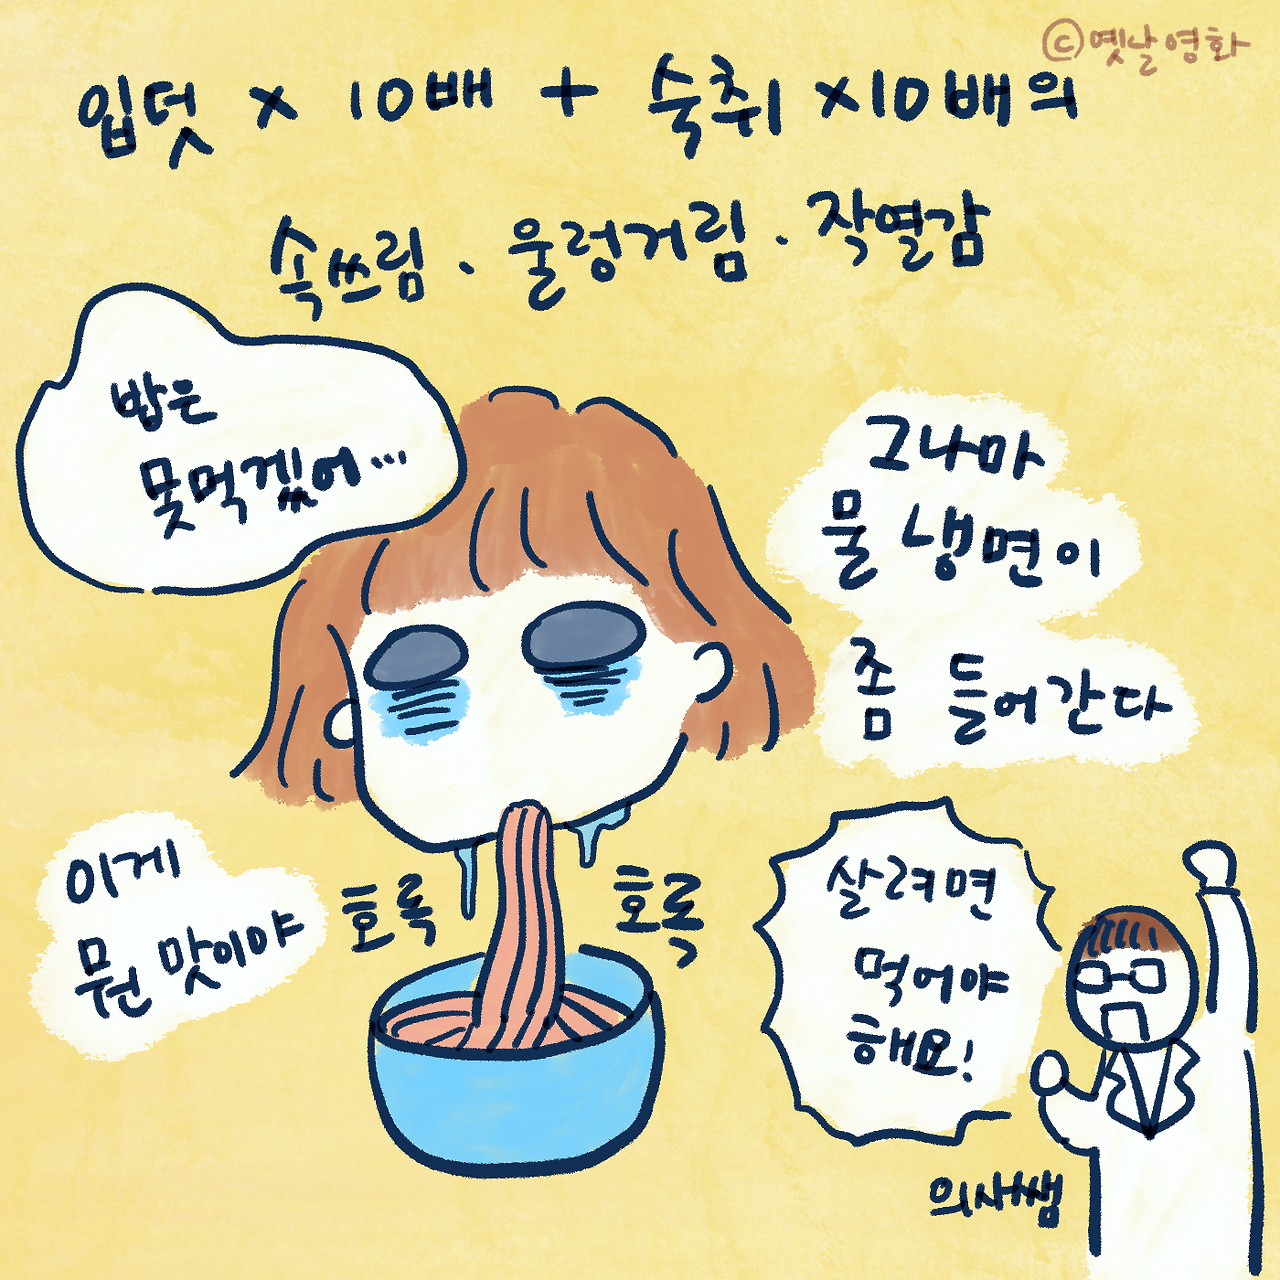 ⓒ옛날영화
입덧 × 10배 + 숙취 ×10배의
속쓰림 · 울렁거림 · 작열감
밥은
못먹겠어...
그나마
물 냉면이
좀 들어간다
이게
뭔 맛이야
호록
호록
살려면
먹어야
해요!
의사쌤